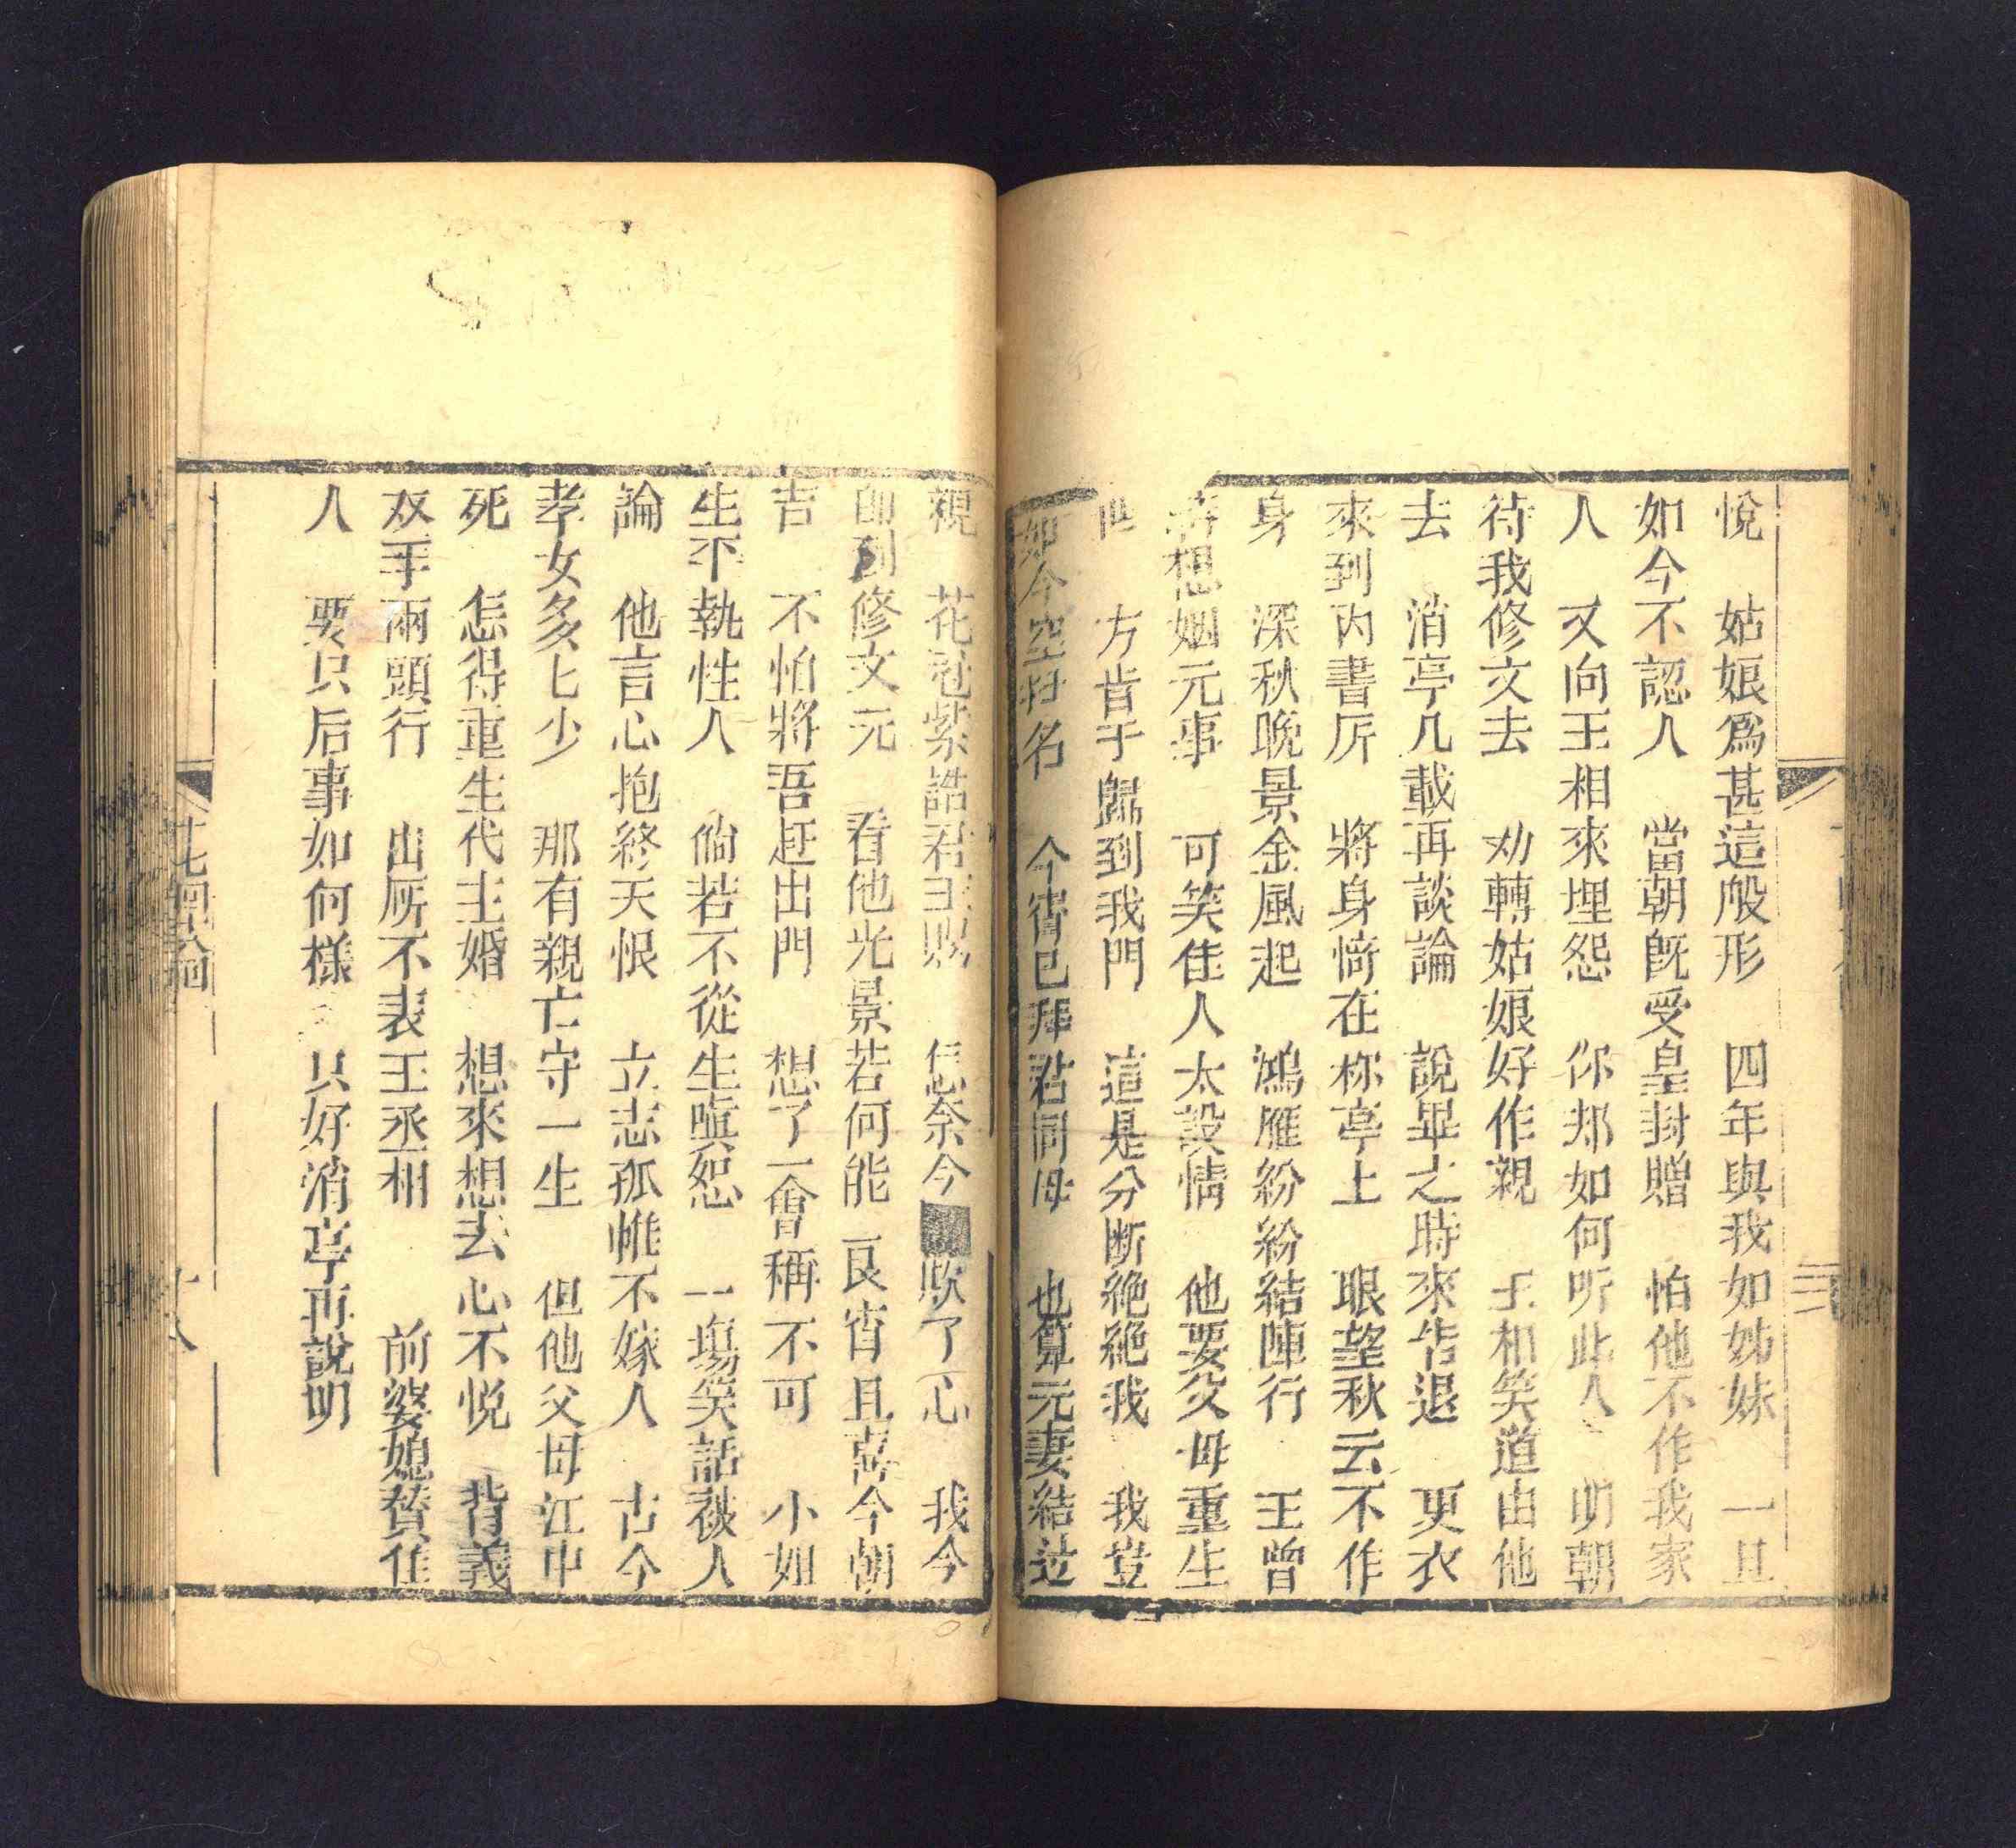 悅　姑娘爲甚這般形　四年與我如姊妹　一旦
如今不認人　當朝旣受皇封贈　怕他不作我家
人　又向王相來埋怨　你邦如何听此人　明朝
待我修文去　劝轉姑娘好作親　王相笑道由他
去　消亭几載再談論　說畢之時來告退　更衣
來到內書房　將身倚在栎亭上　眼望秋云不作
身　深秋晚景金風起　鴻雁紛紛結陣行　王曾
想姻元事　可笑佳人太設情　他要父母重生
　方肯于歸到我門　這是分断絶絕我　我豈
如今空挂名　今宵已拜君同母　也算元妻結过
親　花冠紫誥君王賜　怎奈今欺了心　我今
卽到修文元　看他光景若何能　良宵且喜今朝
吉　不怕將吾赶出門　想了一會稱不可　小如
生平執性人　倘若不從生嗔怒　一塲笑話被人
論　他言心抱終天恨　立志孤帷不嫁人　古今
孝女多七少　那有親亡守一生　但他父母江中
死　怎得重生代主婚　想來想去心不悅　背義
双手兩頭行　出𠩄不表王丞相　前婆媳賛佳
人　要只后事如何樣　只好消亭再說明
十七囬
十八